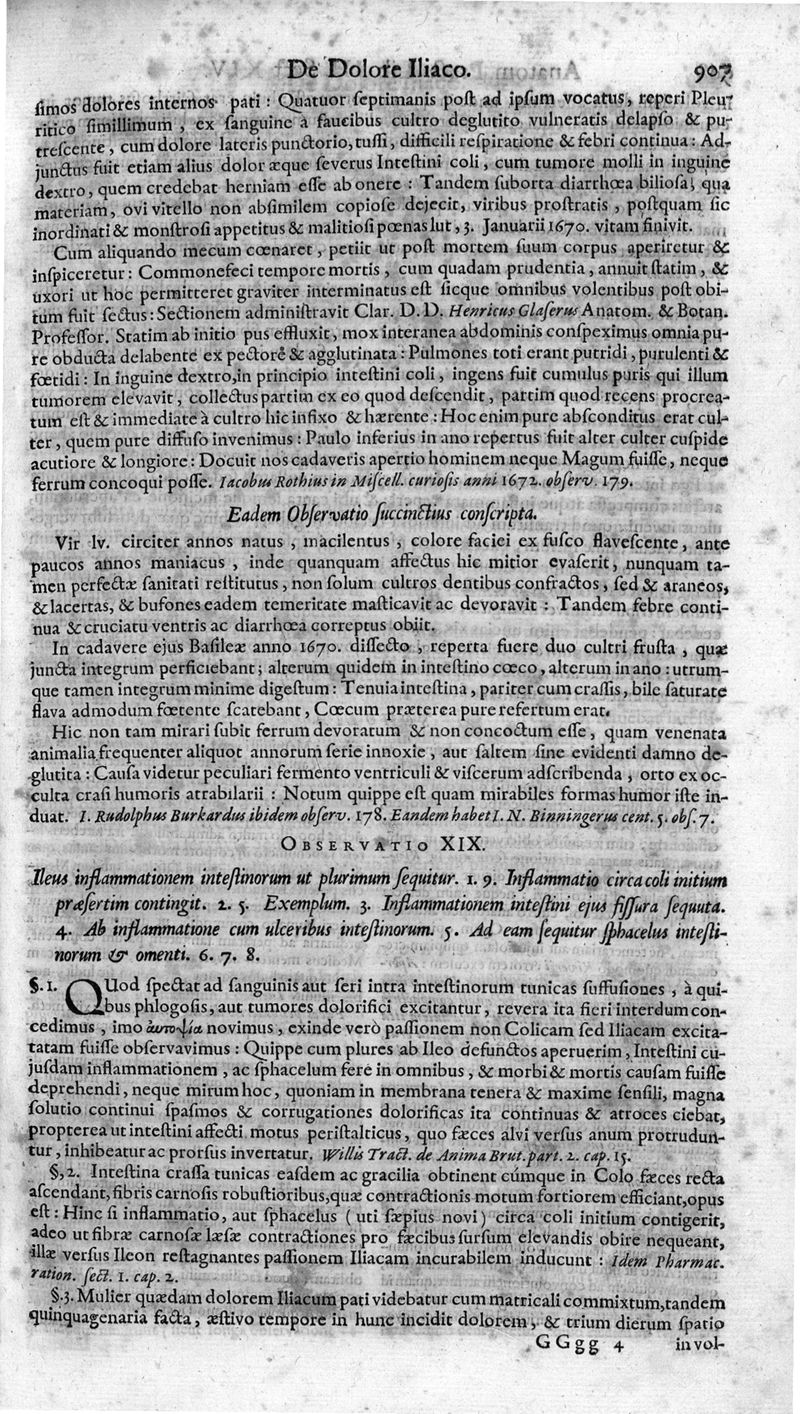 De Dolore Iliaco. 907
ſimos dolores internos pati : Quatuor ſeptimanis poſt ad ipſum vocatus, reperi Pleu-
ritico ſimillimum , ex ſanguine à faucibus cultro deglutito vulneratis delapſo & pu-
treſcente , cum dolore lateris punctorio, tuſſi, difficili reſpiratione & febri continua : Ad-
junctus fuit etiam alius dolor æque ſeverus Inteſtini coli , cum tumore molli in inguine
dextro, quem credebat herniam eſſe ab onere : Tandem ſuborta diarrhœa bilioſa, qua
materiam, ovi vitello non abſimilem copioſe dejecit, viribus proſtratis , poſtquam ſic
inordinati & monſtroſi appetitus & malitioſi pœnas lut, 3. Januarii 1670. vitam finivit.
Cum aliquando mecum cœnaret , petiit ut poſt mortem ſuum corpus aperiretur &
inſpiceretur : Commonefeci tempore mortis , cum quadam prudentia , annuit ſtatim , &
uxori ut hoc permitteret graviter interminatus eſt ſicque omnibus volentibus poſt obi-
tum fuit ſectus : Sectionem adminiſtravit Clar. D. D. Henricus Glaſerus Anatom. & Botan.
Profeſſor. Statim ab initio pus effluxit, mox interanea abdominis conſpeximus omnia pu-
re obducta delabente ex pectore & agglutinata : Pulmones toti erant putridi , purulenti &
fœtidi : In inguine dextro, in principio inteſtini coli , ingens fuit cumulus puris qui illum
tumorem elevavit , collectus partim ex eo quod deſcendit , partim quod recens procrea-
tum eſt & immediate à cultro hic infixo & hærente : Hoc enim pure abſconditus erat cul-
ter, quem pure diffuſo invenimus : Paulo inferius in ano repertus fuit alter culter cuſpide
acutiore & longiore : Docuit nos cadaveris apertio hominem neque Magum fuiſſe , neque
ferrum concoqui poſſe. Iacobus Rothius in Miſcell. curioſis anni 1672. obſerv. 179.
Eadem Obſervatio ſuccinctius conſcripta.
Vir lv. circiter annos natus , macilentus , colore faciei ex fuſco flaveſcente, ante
paucos annos maniacus , inde quanquam affectus hic mitior evaſerit, nunquam ta-
men perfectæ ſanitati reſtitutus , non ſolum cultros dentibus confractos , ſed & araneos,
& lacertas, & bufones eadem temeritate maſticavit ac devoravit : Tandem febre conti-
nua & cruciatu ventris ac diarrhœa correptus obiit.
In cadavere ejus Baſileæ anno 1670. diſſecto , reperta fuere duo cultri fruſta , quæ
juncta integrum perficiebant ; alterum quidem in inteſtino cœco, alterum in ano : utrum-
que tamen integrum minime digeſtum : Tenuia inteſtina , pariter cum craſſis, bile ſaturate
flava admodum fœtente ſcatebant , Cœcum præterea pure refertum erat.
Hic non tam mirari ſubit ferrum devoratum & non concoctum eſſe , quam venenata
animalia frequenter aliquot annorum ſerie innoxie , aut ſaltem ſine evidenti damno de-
glutita : Cauſa videtur peculiari fermento ventriculi & viſcerum adſcribenda , orto ex oc-
culta craſi humoris atrabilarii : Notum quippe eſt quam mirabiles formas humor iſte in-
duat. I. Rudolphus Burkardus ibidem obſerv. 178. Eandem habet I. N. Binningerus cent. 5. obſ. 7.
OBSERVATIO XIX.
Ileus inflammationem inteſtinorum ut plurimum ſequitur. 1. 9. Inflammatio circa coli initium
præſertim contingit. 2. 5. Exemplum. 3. Inflammationem inteſtini ejus fiſſura ſequuta.
4. Ab inflammatione cum ulceribus inteſtinorum. 5. Ad eam ſequitur ſphacelus inteſti-
norum & omenti. 6. 7. 8.
§. 1. QUod ſpectat ad ſanguinis aut ſeri intra inteſtinorum tunicas ſuffuſiones , à qui-
bus phlogoſis, aut tumores dolorifici excitantur, revera ita fieri interdum con-
cedimus , imo ἀυτοψίᾳ novimus , exinde verò paſſionem non Colicam ſed Iliacam excita-
tatam fuiſſe obſervavimus : Quippe cum plures ab Ileo defunctos aperuerim, Inteſtini cu-
juſdam inflammationem , ac ſphacelum fere in omnibus , & morbi & mortis cauſam fuiſſe
deprehendi , neque mirum hoc , quoniam in membrana tenera & maxime ſenſili, magna
ſolutio continui ſpaſmos & corrugationes dolorificas ita continuas & atroces ciebat,
propterea ut inteſtini affecti motus periſtalticus , quo fæces alvi verſus anum protrudun-
tur , inhibeatur ac prorſus invertatur. Willis Tract. de Anima Brut. part. 2. cap. 15.
§, 2. Inteſtina craſſa tunicas eaſdem ac gracilia obtinent cúmque in Colo fæces recta
aſcendant, fibris carnoſis robuſtioribus, quæ contractionis motum fortiorem efficiant, opus
eſt : Hinc ſi inflammatio, aut ſphacelus ( uti ſæpius novi ) circa coli initium contigerit,
adeo ut fibræ carnoſæ læſæ contractiones pro fæcibus ſurſum elevandis obire nequeant,
illæ verſus Ileon reſtagnantes paſſionem Iliacam incurabilem inducunt : Idem Pharmac.
ration. ſect. 1. cap. 2.
§. 3. Mulier quædam dolorem Iliacum pati videbatur cum matricali commixtum, tandem
quinquagenaria facta , æſtivo tempore in hunc incidit dolorem, & trium dierum ſpatio
GGgg 4 invol-